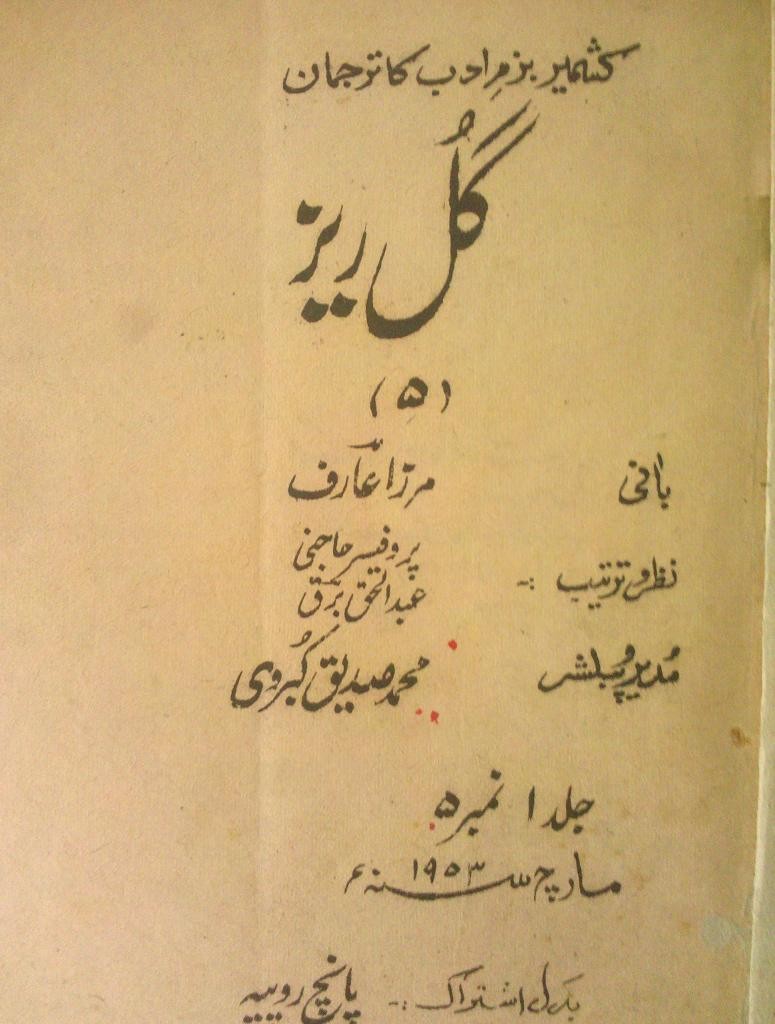 کشمیر بزمِ ادب کا ترجمان
گُل ریز
(۵)
بانی مرزا عارفؔ
نظر و ترتیب :- پروفیسر حاجنی
عبدالحق برقؔ
مُدیر و پبلشر محمد صدیق کُبروی
جلد ۱ نمبر ۵
مارچ سنہ ۱۹۵۳ء
بدل اشتراک :- پانچ روپیہ